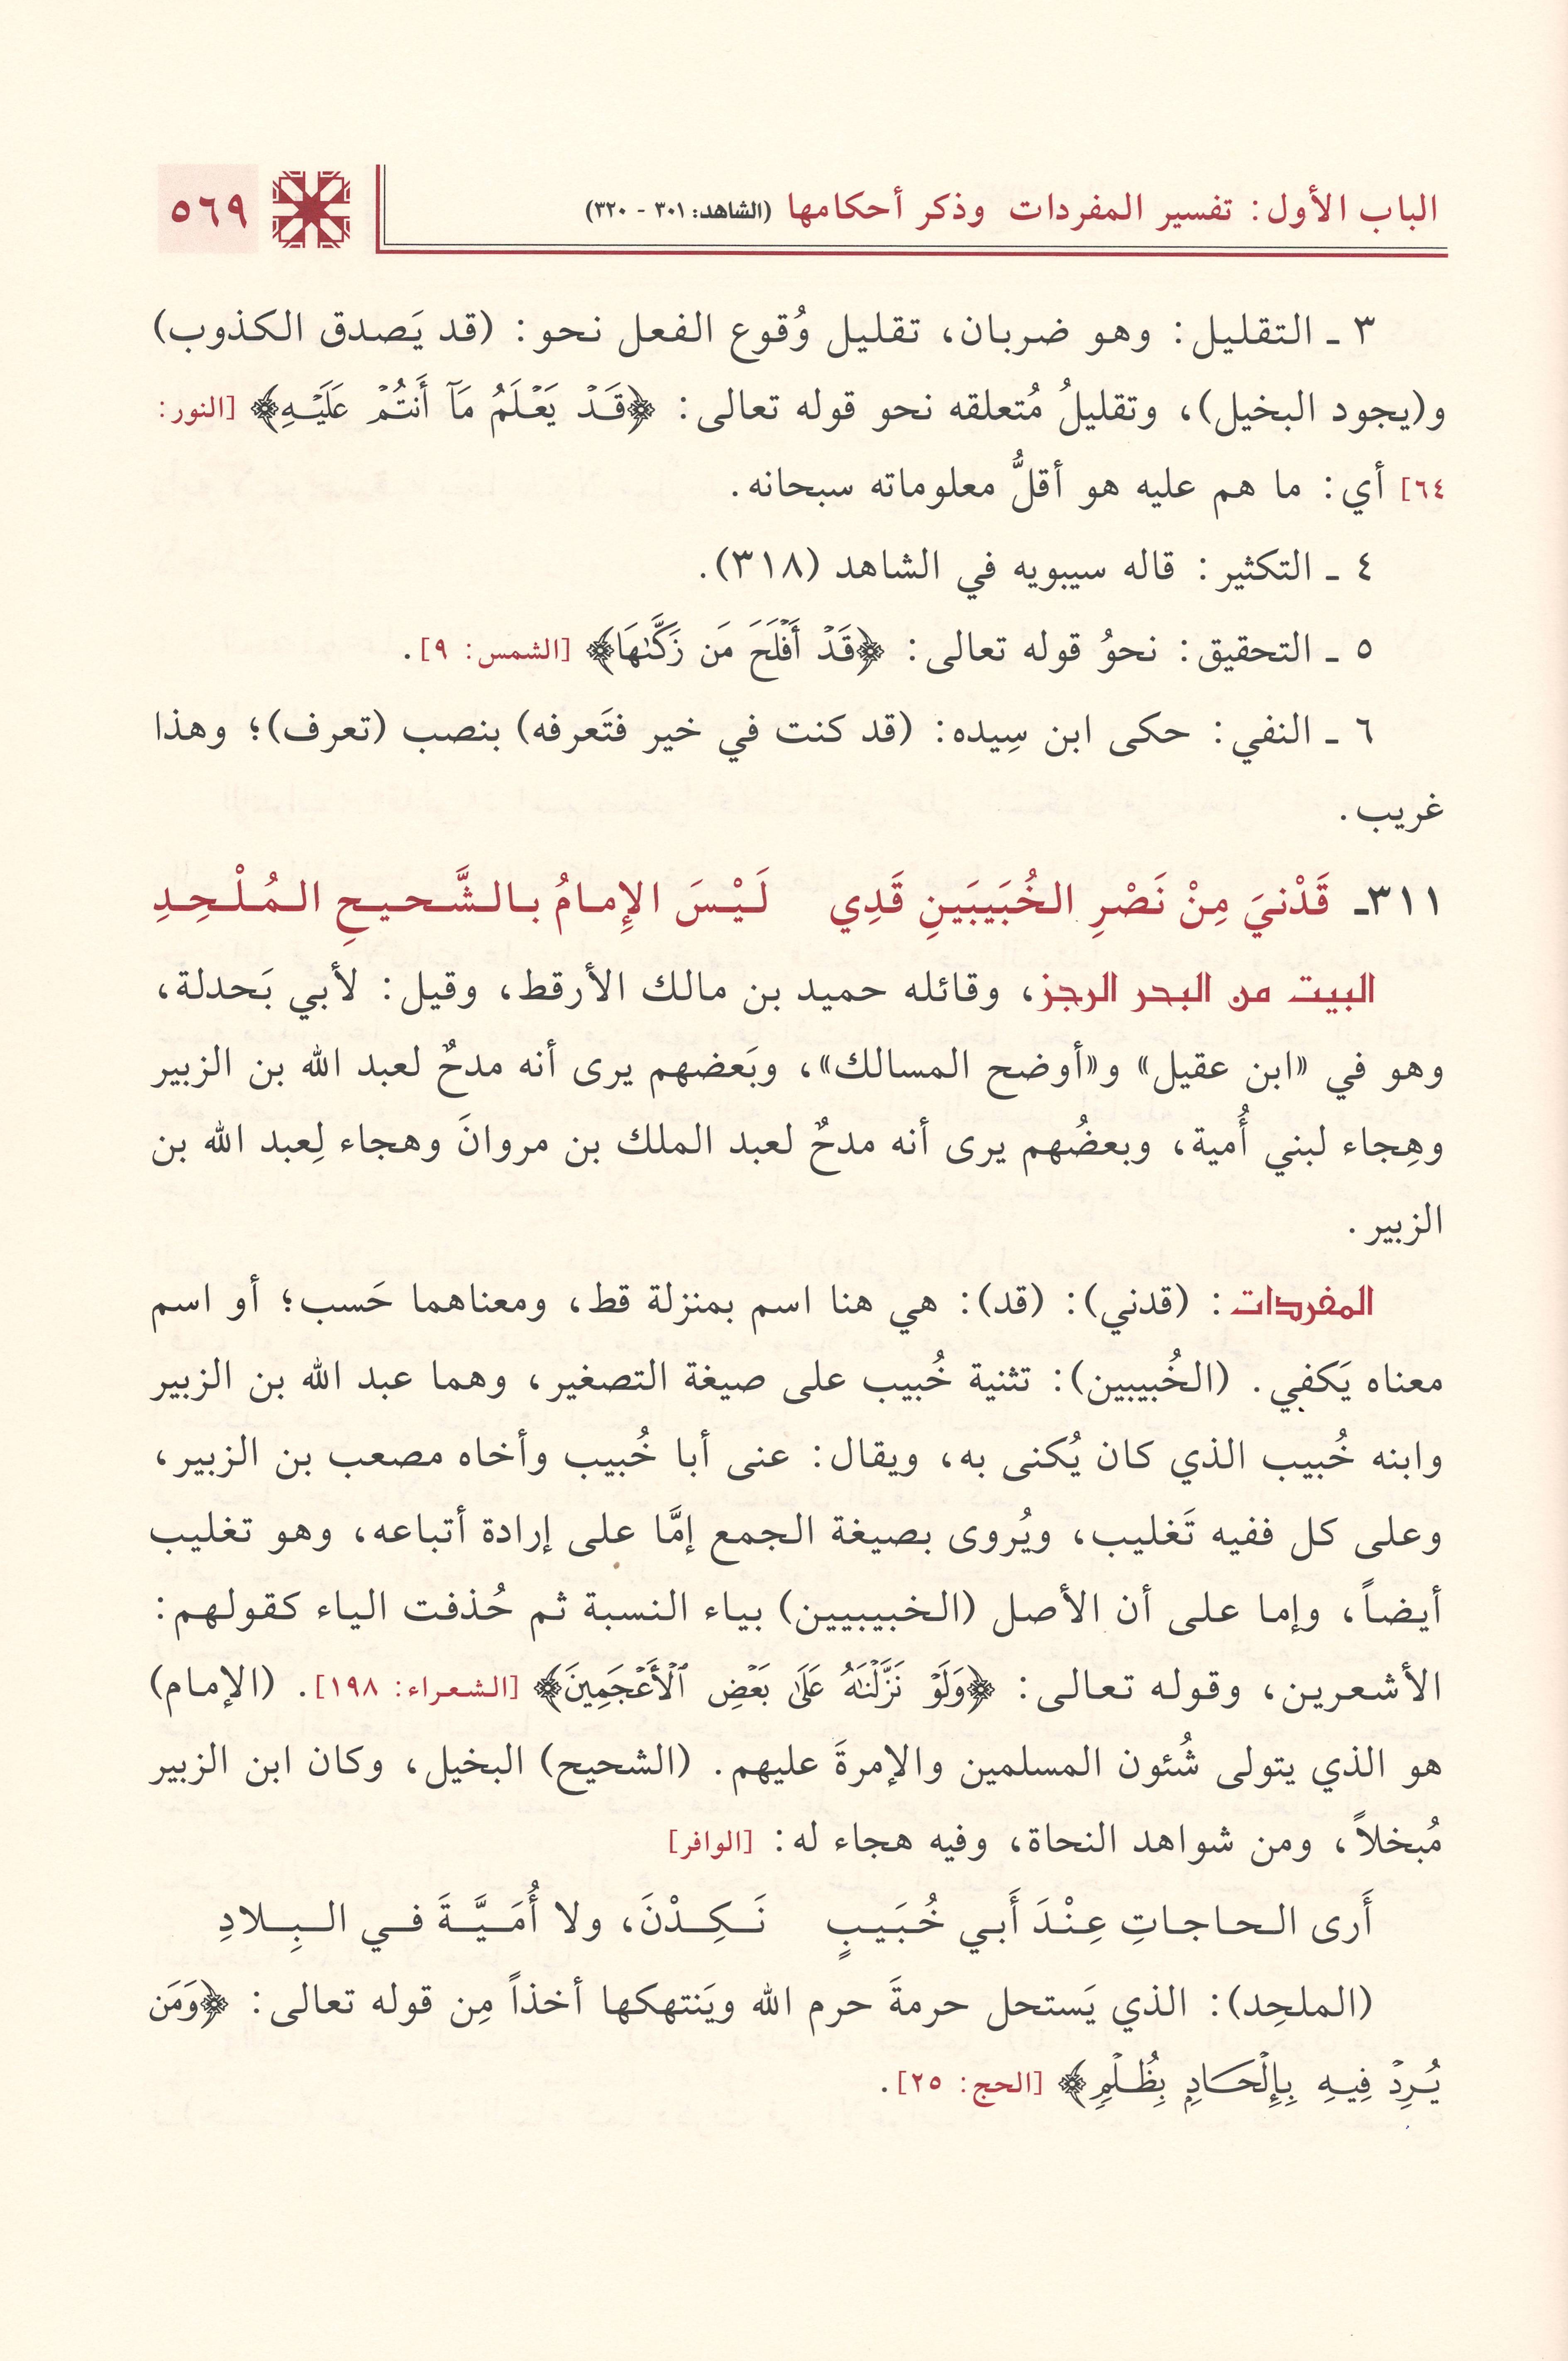 الباب الأول: تفسير المفردات وذكر أحكامها (الشاهد: ٣٠١ - ٣٢٠)
٥٦٩
٣ ـ التقليل: وهو ضربان، تقليل وُقوع الفعل نحو: (قد يَصدق الكذوب)
و(يجود البخيل)، وتقليلُ مُتعلقه نحو قوله تعالى: ﴿قَدْ يَعْلَمُ مَآ أَنتُمْ عَلَيْهِ﴾ [النور:
٦٤] أي: ما هم عليه هو أقلُّ معلوماته سبحانه.
٤ ـ التكثير: قاله سيبويه في الشاهد (٣١٨).
٥ ـ التحقيق: نحوُ قوله تعالى: ﴿قَدْ أَفْلَحَ مَن زَكَّىٰهَا﴾ [الشمس: ٩].
٦ ـ النفي: حكى ابن سِيده: (قد كنت في خير فتَعرفه) بنصب (تعرف)؛ وهذا
غريب.
٣١١ـ قَدْنيَ مِنْ نَصْرِ الخُبَيبَينِ قَدِي لَيْسَ الإِمامُ بالشَّحيحِ المُلْحِدِ
البيت من البحر الرجز، وقائله حميد بن مالك الأرقط، وقيل: لأبي بَحدلة،
وهو في «ابن عقيل» و«أوضح المسالك»، وبَعضهم يرى أنه مدحٌ لعبد الله بن الزبير
وهِجاء لبني أُمية، وبعضُهم يرى أنه مدحٌ لعبد الملك بن مروانَ وهجاء لِعبد الله بن
الزبير.
المفردات: (قدني): (قد): هي هنا اسم بمنزلة قط، ومعناهما حَسب؛ أو اسم
معناه يَكفي. (الخُبيبين): تثنية خُبيب على صيغة التصغير، وهما عبد الله بن الزبير
وابنه خُبيب الذي كان يُكنى به، ويقال: عنى أبا خُبيب وأخاه مصعب بن الزبير،
وعلى كل ففيه تَغليب، ويُروى بصيغة الجمع إمَّا على إرادة أتباعه، وهو تغليب
أيضاً، وإما على أن الأصل (الخبيبيين) بياء النسبة ثم حُذفت الياء كقولهم:
الأشعرين، وقوله تعالى: ﴿وَلَوْ نَزَّلْنَٰهُ عَلَىٰ بَعْضِ ٱلْأَعْجَمِينَ﴾ [الشعراء: ١٩٨]. (الإمام)
هو الذي يتولى شُئون المسلمين والإمرةَ عليهم. (الشحيح) البخيل، وكان ابن الزبير
مُبخلاً، ومن شواهد النحاة، وفيه هجاء له: [الوافر]
أَرى الحاجاتِ عِنْدَ أَبي خُبَيبٍ نَكِدْنَ، ولا أُمَيَّةَ في البِلادِ
(الملحِد): الذي يَستحل حرمةَ حرم الله ويَنتهكها أخذاً مِن قوله تعالى: ﴿وَمَن
يُرِدْ فِيهِ بِإِلْحَادٍ بِظُلْمٍ﴾ [الحج: ٢٥].